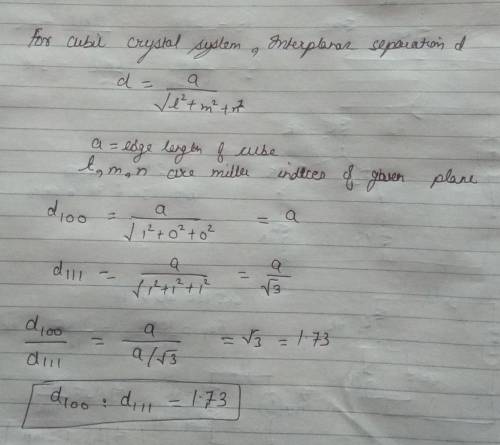 For cubic crystal system, Interplanar separation d
d = a / √(l² + m² + n²)
a = edge length of cube
l, m, n are miller indices of given plane
d₁₀₀ = a / √(1² + 0² + 0²) = a
d₁₁₁ = a / √(1² + 1² + 1²) = a / √3
d₁₀₀ / d₁₁₁ = a / (a/√3) = √3 = 1.73
d₁₀₀ : d₁₁₁ = 1.73